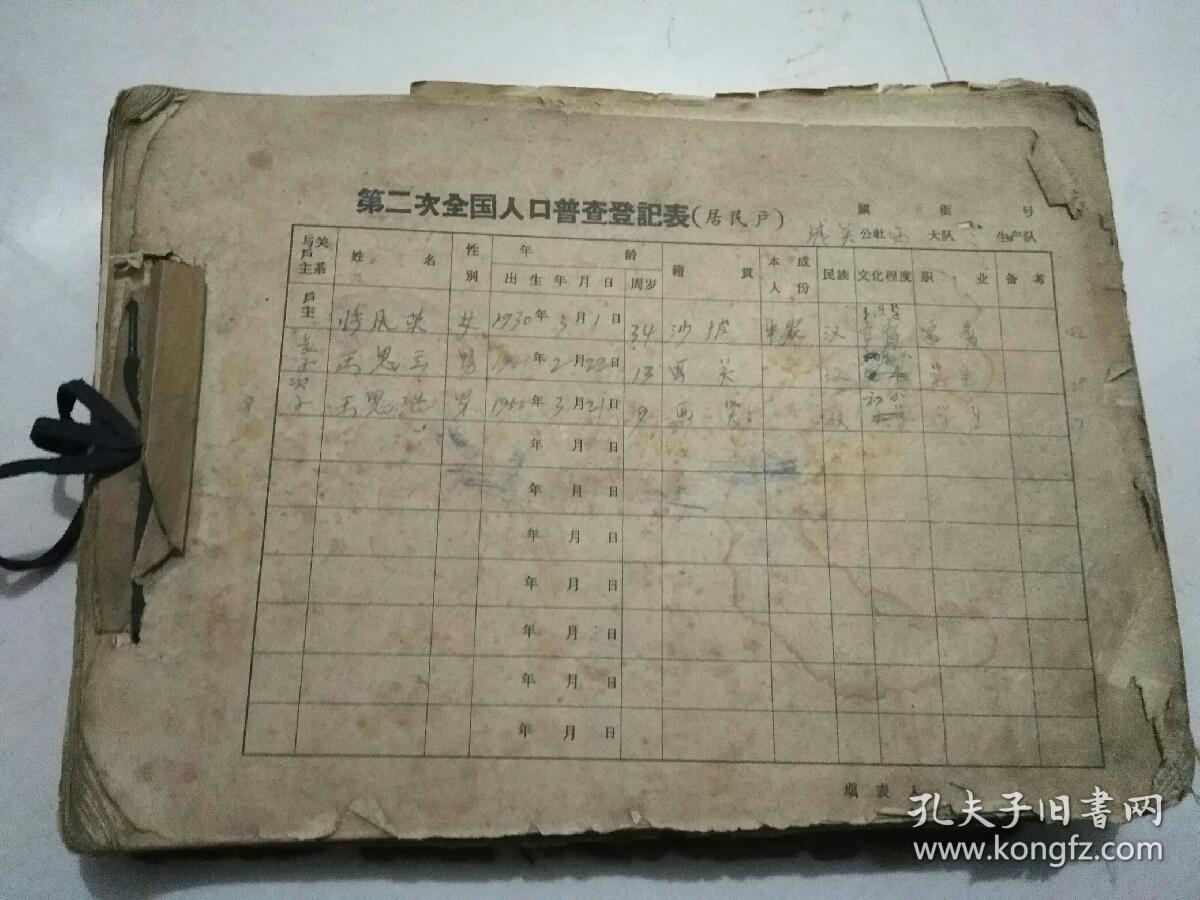 第二次全国人口普查登記表(居民戶)
鎮 街 号
公社 大队 生产队
与戶主关系 姓 名 性別 年 齡 籍 貫 本人成份 民族 文化程度 职 业 备 考
出 生 年 月 日 周岁
戶主 凤英 女 1930年3月1日 34 沙坡 汉
长子 王思玉 男 年2月22日 13 西关 汉 学生
次子 王思 男 1955年3月21日 9 西关 汉 初小 学生
年 月 日
年 月 日
年 月 日
年 月 日
年 月 日
年 月 日
年 月 日
填 表 人
孔夫子旧書网
www.kongfz.com